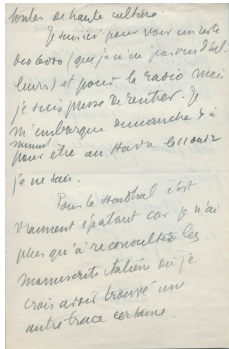 toutes de haute culture.
Je suis ici pour voir un reste
des 6000 (que je n'ai pas vus d'ail-
leurs) et pour la radio mais
je suis pressé de rentrer. Je
m'embarque dimanche à
minuit
pour être au Havre le
je ne sais.
Pour le Stendhal c'est
vraiment épatant car je n'ai
plus qu'à reconsulter les
manuscrits italiens où je
crois avoir trouvé une
autre trace certaine.